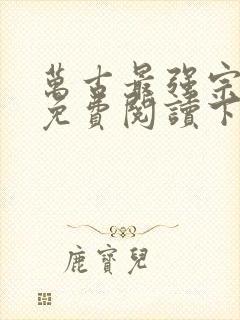 萬古最強宗
免費閱讀下
鹿寶兒